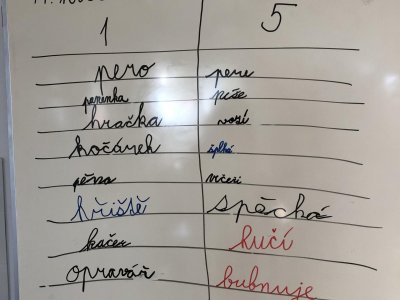 1 5
pero pere
peřinka píše
hračka vozí
kočárek šplhá
pěna vrčesi
hřiště spěchá
kačer kučí
opravář bubnuje